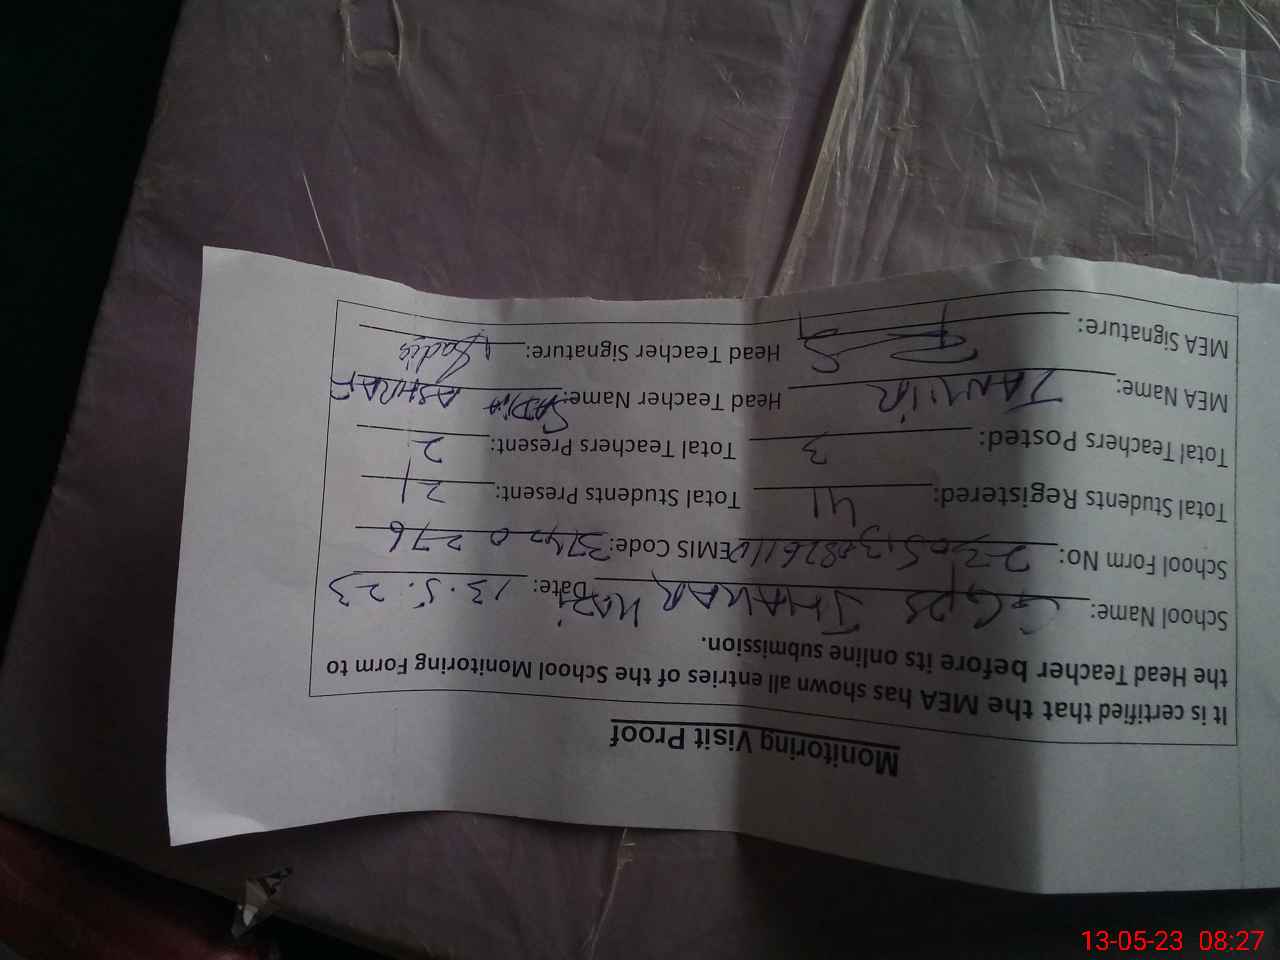 Monitoring Visit Proof
It is certified that the MEA has shown all entries of the School Monitoring Form to
the Head Teacher before its online submission.
School Name: GGPS JHAKAR Date: 13.5.23
School Form No: EMIS Code: 37420276
Total Students Registered: 41 Total Students Present: 21
Total Teachers Posted: 3 Total Teachers Present: 2
MEA Name: Head Teacher Name: SADIA ASHRAF
MEA Signature: Head Teacher Signature: Sadia
13-05-23 08:27